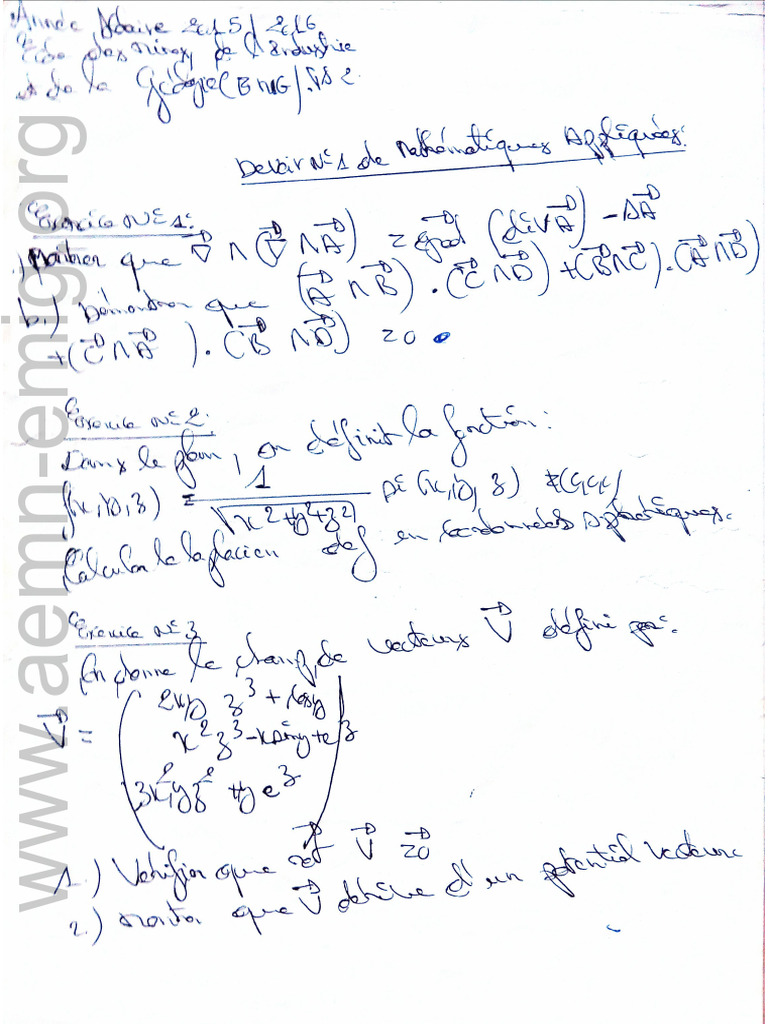 Année Scolaire 2015/2016
Ecole des Mines, de l'Industrie
et de la Géologie (EMIG).
Devoir N°1 de Mathématiques Appliquées:
Exercice N°1:
a.) Montrer que ∇⃗ ∧ (∇⃗ ∧ A⃗) = grad⃗ (div A⃗) - ΔA⃗
b.) Démontrer que (A⃗ ∧ B⃗) . (C⃗ ∧ D⃗) + (B⃗ ∧ C⃗) . (A⃗ ∧ D⃗)
+ (C⃗ ∧ A⃗) . (B⃗ ∧ D⃗) = 0.
Exercice N°2:
Dans le plan, on définit la fonction:
f(x,y,z) = 1/√(x²+y²+z²) si (x,y,z) ≠ (0,0,0)
Calculer le laplacien de f en coordonnées sphériques.
Exercice N°3
On donne le champ de vecteurs V⃗ défini par:
2xy z³ + cos y
V⃗ = x² z³ - x sin y + e^z
3x²yz² + y e^z
1.) Vérifier que rot⃗ V⃗ = 0⃗
2.) Montrer que V⃗ dérive d'un potentiel vecteur
www.aemn-emig.org